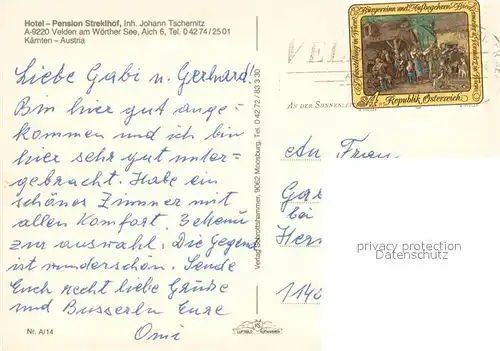 Hotel – Pension Streklhof, Inh. Johann Tschernitz
A-9220 Velden am Wörther See, Aich 6, Tel. 0 42 74 / 25 01
Kärnten – Austria
Liebe Gabi u. Gerhard!
Bin hier gut ange=
kommen und ich bin
hier sehr gut unter=
gebracht. Habe ein
schönes Zimmer mit
allen Komfort. 3 Menü
zur auswahl. Die Gegend
ist wunderschön. Sende
Euch recht liebe Grüße
und Busserln Eure
Omi
Nr. A/14
Verlag Schrottshammer, 9062 Moosburg, Tel. 0 42 72 / 83 3 30
Ausstellung in Wien
Republik Österreich
VEL
AN DER SONNEN
An Frau
Ga
bei
Her
114
privacy protection
Datenschutz